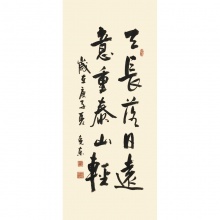 天長落日遠
意重泰山輕
歲在庚子夏